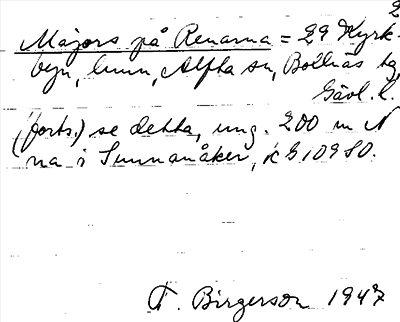 2
Majors på Renarna = 29 Kyrk-
byn, Alfta sn, Bollnäs tg,
Gävl. l.
(forts.) se detta, ung. 200 m N
na i Sunnanåker, K G 10980.
T. Birgerson 1947